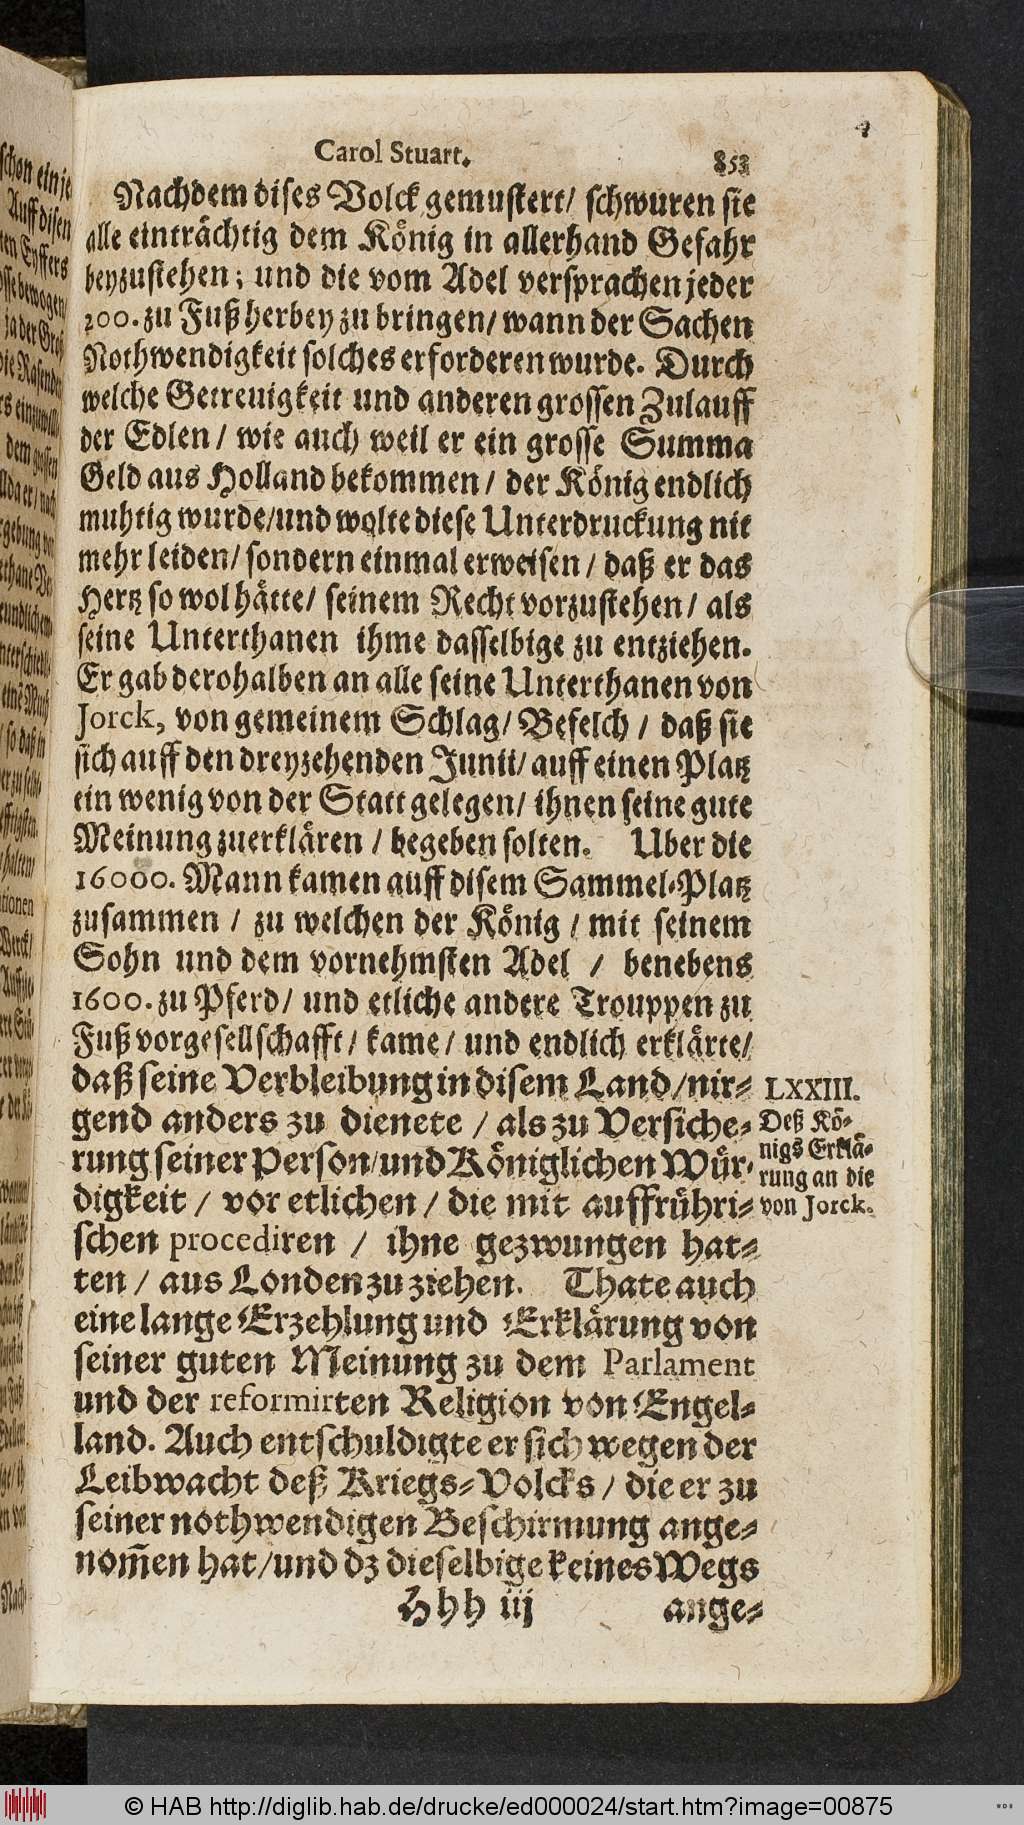 Carol Stuart. 853
Nachdem dises Volck gemustert/ schwuren sie
alle einträchtig dem König in allerhand Gefahr
beyzustehen; und die vom Adel versprachen jeder
200. zu Fuß herbey zu bringen/ wann der Sachen
Nothwendigkeit solches erforderen wurde. Durch
welche Getreuigkeit und anderen grossen Zulauff
der Edlen/ wie auch weil er ein grosse Summa
Geld aus Holland bekommen/ der König endlich
muhtig wurde/und wolte diese Unterdruckung nit
mehr leiden/ sondern einmal erweisen/ daß er das
Hertz so wol hätte/ seinem Recht vorzustehen/ als
seine Unterthanen ihme dasselbige zu entziehen.
Er gab derohalben an alle seine Unterthanen von
Jorck, von gemeinem Schlag/ Befelch/ daß sie
sich auff den dreyzehenden Junii/ auff einen Platz
ein wenig von der Statt gelegen/ ihnen seine gute
Meinung zuerklären/ begeben solten. Uber die
16000. Mann kamen auff disem Sammel-Platz
zusammen/ zu welchen der König/ mit seinem
Sohn und dem vornehmsten Adel/ benebens
1600. zu Pferd/ und etliche andere Trouppen zu
Fuß vorgesellschafft/ kame/ und endlich erklärte/
daß seine Verbleibung in disem Land/nir-
gend anders zu dienete/ als zu Versiche-
rung seiner Person/und Königlichen Wür-
digkeit/ vor etlichen/ die mit auffrühri-
schen procediren/ ihne gezwungen hat-
ten/ aus Londen zu ziehen. Thate auch
eine lange Erzehlung und Erklärung von
seiner guten Meinung zu dem Parlament
und der reformirten Religion von Engel-
land. Auch entschuldigte er sich wegen der
Leibwacht deß Kriegs-Volcks/ die er zu
seiner nothwendigen Beschirmung ange-
nom̃en hat/und dz dieselbige keines Wegs
Hhh iij ange-
LXXIII.
Deß Kö-
nigs Erklä-
rung an die
von Jorck.
© HAB http://diglib.hab.de/drucke/ed000024/start.htm?image=00875